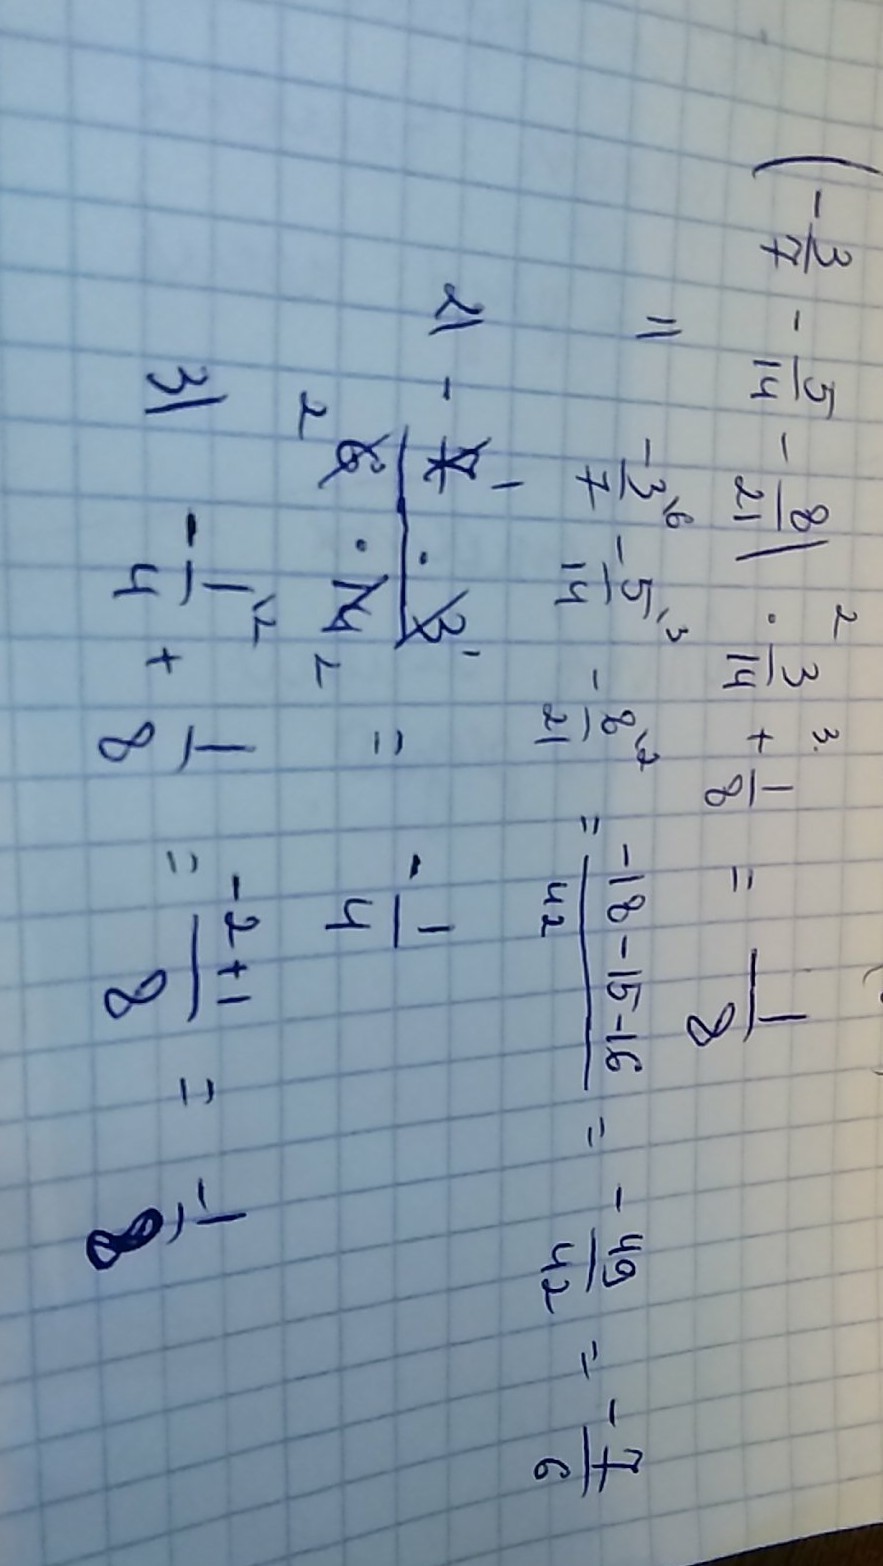 (-3/7 - 5/14 - 8/21) ² · 3/14 ³· + 1/8 = 1/8
1) -3/7 \6 - 5/14 \3 - 8/21 \2 = (-18-15-16)/42 = -49/42 = -7/6
2) - (7 ¹ · 3 ¹)/(6 ₂ · 14 ₂) = -1/4
3) -1/4 \2 + 1/8 = (-2+1)/8 = -1/8